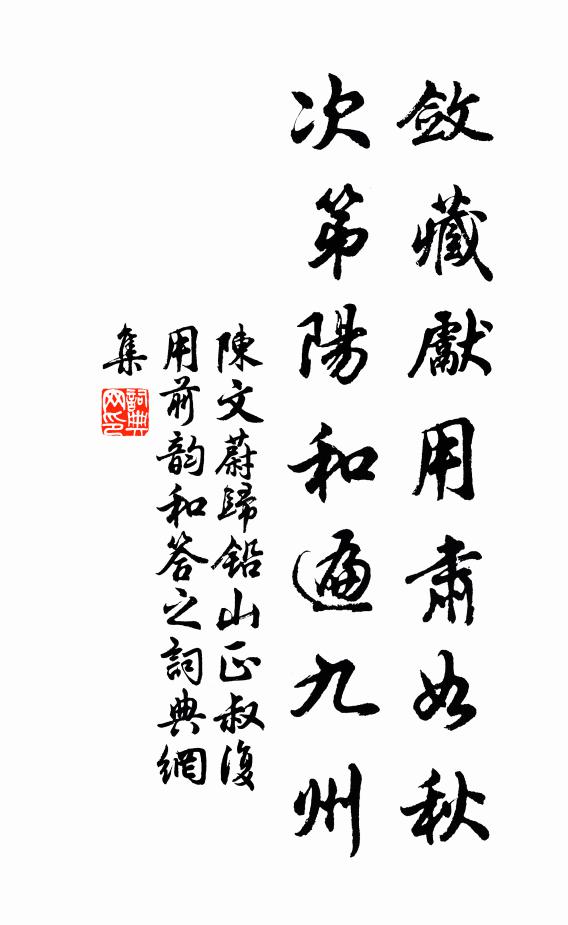 斂藏獻用肅如秋
次第陽和遍九州
陳文蔚歸鉛山正叔復
用前韵和答之詞典網
集
詞典
网印